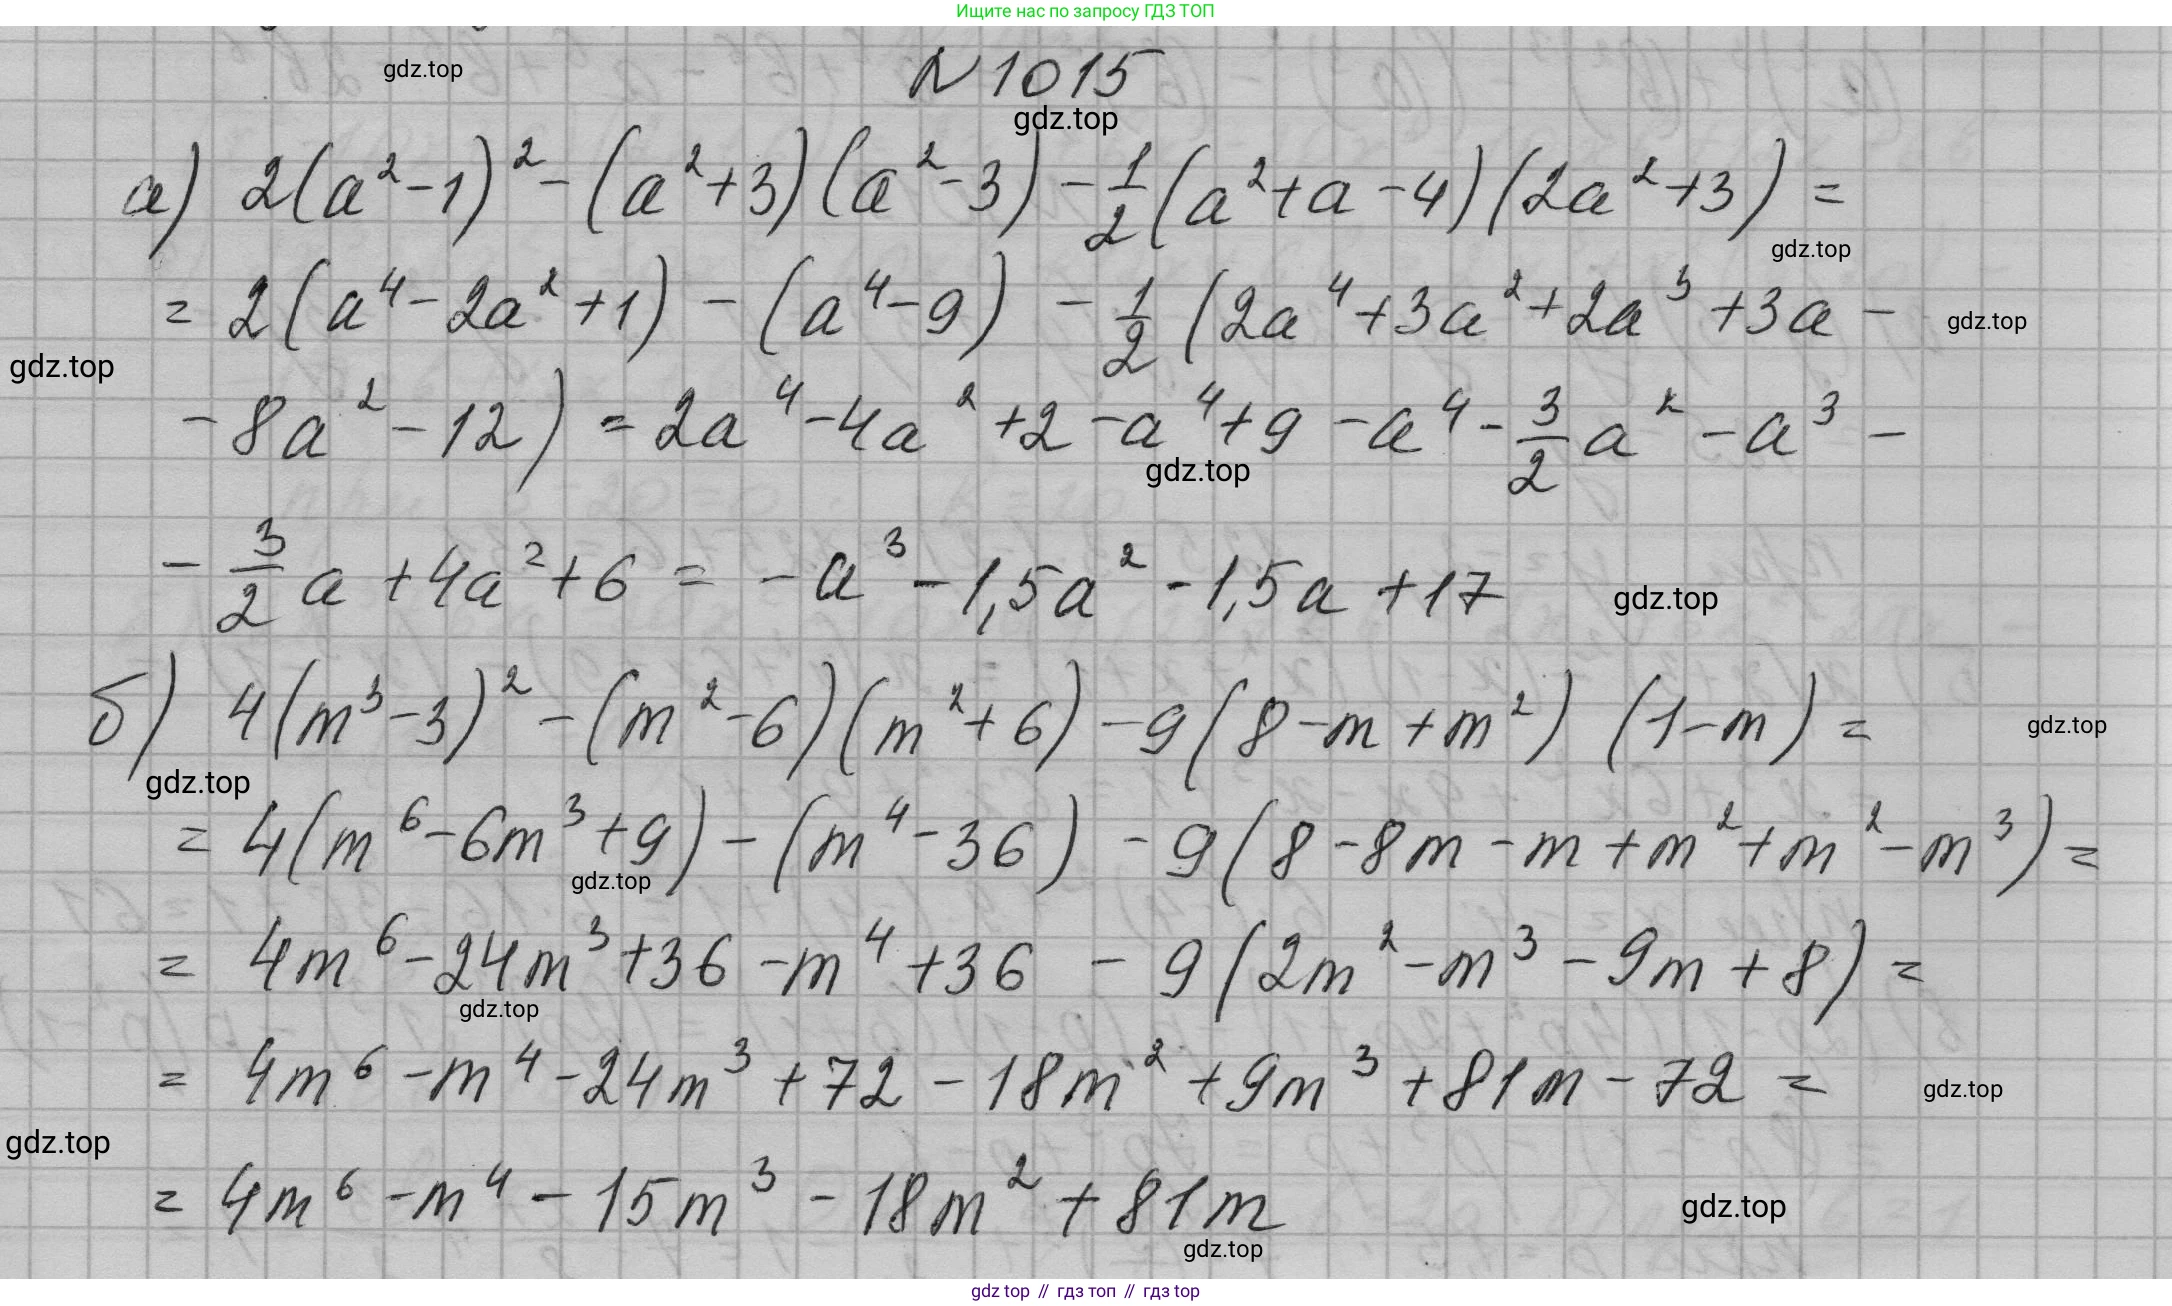 Ищите нас по запросу ГДЗ ТОП
gdz.top
№ 1015
gdz.top
а) 2(a²-1)² - (a²+3)(a²-3) - 1/2(a²+a-4)(2a²+3) =
gdz.top
= 2(a⁴-2a²+1) - (a⁴-9) - 1/2(2a⁴+3a²+2a³+3a-
gdz.top
gdz.top
-8a²-12) = 2a⁴-4a²+2-a⁴+9-a⁴-3/2a²-a³-
gdz.top
- 3/2a+4a²+6 = -a³-1,5a²-1,5a+17
gdz.top
б) 4(m³-3)² - (m²-6)(m²+6) - 9(8-m+m²)(1-m) =
gdz.top
gdz.top
= 4(m⁶-6m³+9) - (m⁴-36) - 9(8-8m-m+m²+m²-m³) =
gdz.top
= 4m⁶-24m³+36-m⁴+36 - 9(2m²-m³-9m+8) =
gdz.top
= 4m⁶-m⁴-24m³+72-18m²+9m³+81m-72 =
gdz.top
gdz.top
= 4m⁶-m⁴-15m³-18m²+81m
gdz.top
gdz.top
gdz top // гдз топ // гдз top